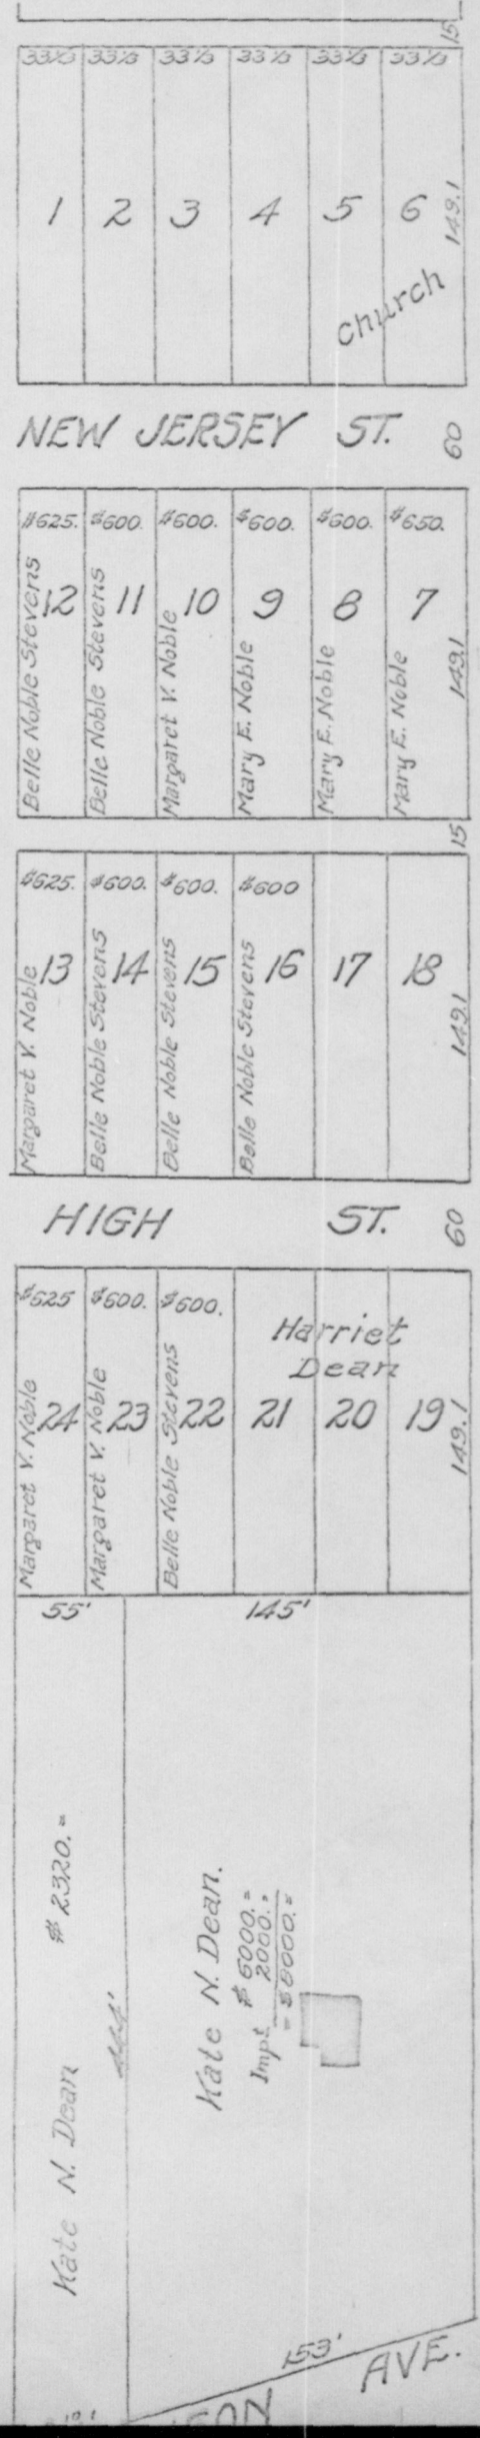 15
33⅓ 33⅓ 33⅓ 33⅓ 33⅓ 33⅓
1 2 3 4 5 6
149.1
church
NEW JERSEY ST. 60
$625. $600. $600. $600. $600. $650.
12 11 10 9 8 7
Belle Noble Stevens
Belle Noble Stevens
Margaret V. Noble
Mary E. Noble
Mary E. Noble
Mary E. Noble
149.1
15
$625. $600. $600. $600
13 14 15 16 17 18
Margaret V. Noble
Belle Noble Stevens
Belle Noble Stevens
Belle Noble Stevens
149.1
HIGH ST. 60
$625 $600. $600.
Harriet
Dean
24 23 22 21 20 19
Margaret V. Noble
Margaret V. Noble
Belle Noble Stevens
149.1
55' 145'
Kate N. Dean $2320.=
Kate N. Dean.
$6000.=
Impt. 2000.=
= $8000.=
153'
AVE.